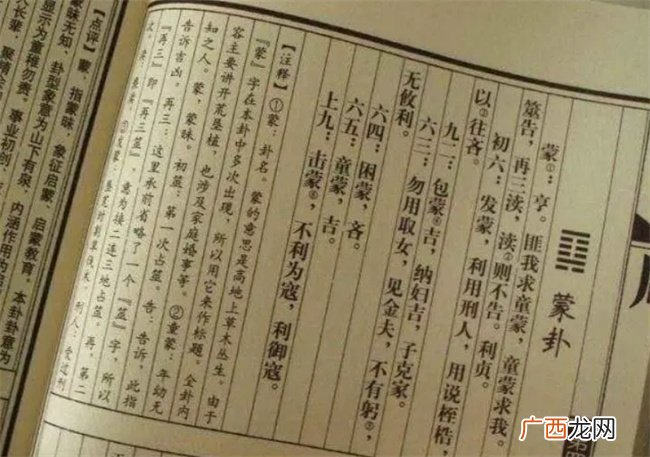 蒙卦
蒙①：亨。匪我求童蒙，童蒙求我。
筮告，再三渎，渎则不告。利贞。
初六：发蒙，利用刑人，用说桎梏，
以往吝。
九二：包蒙吉，纳妇吉，子克家。
六三：勿用取女，见金夫，不有躬，
无攸利。
六四：困蒙，吝。
六五：童蒙，吉。
上九：击蒙，不利为寇，利御寇。
【注释】①蒙：卦名。蒙的意思是高地上草木丛生。由于
『蒙』字在本卦中多次出现，所以用它来作标题。全卦内
容主要讲开荒垦植，也涉及家庭婚事等。②童蒙：年幼无
知之人。蒙，蒙昧。初筮：第一次占筮。告，告诉，此指
告诉吉凶。再三：这里承前省略了一个『筮』字，所以
『再三』即『再三筮』，意为接二连三地占筮。再，第二
【点评】蒙，指蒙昧，象征启蒙，启蒙教育，本卦卦意为
蒙昧无知，卦型象意为山下有泉，内涵作用内
显示为童稚勿责。事业初创，
人长辈，聚精
广西龙网